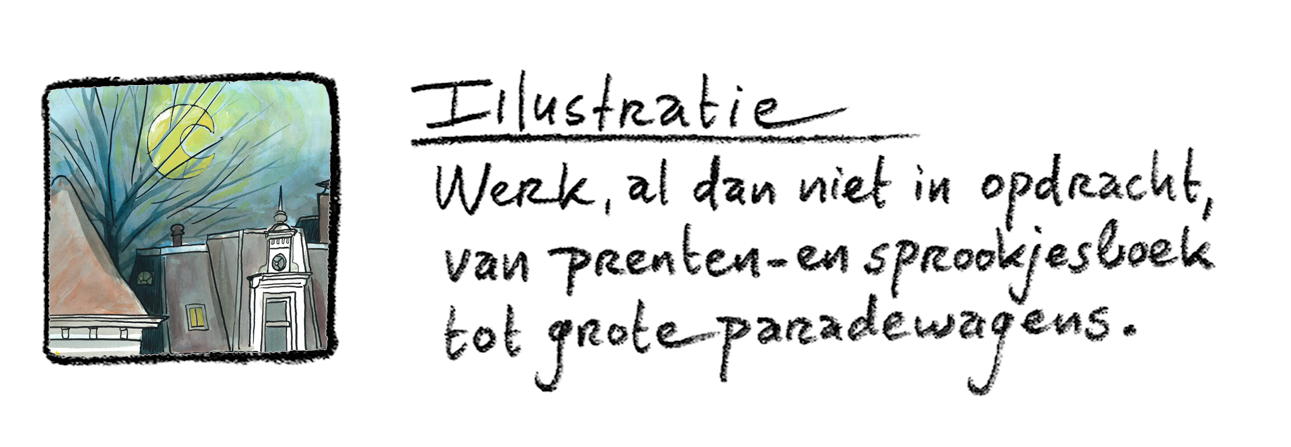 Illustratie
Werk, al dan niet in opdracht,
van prenten-en sprookjesboek
tot grote paradewagens.